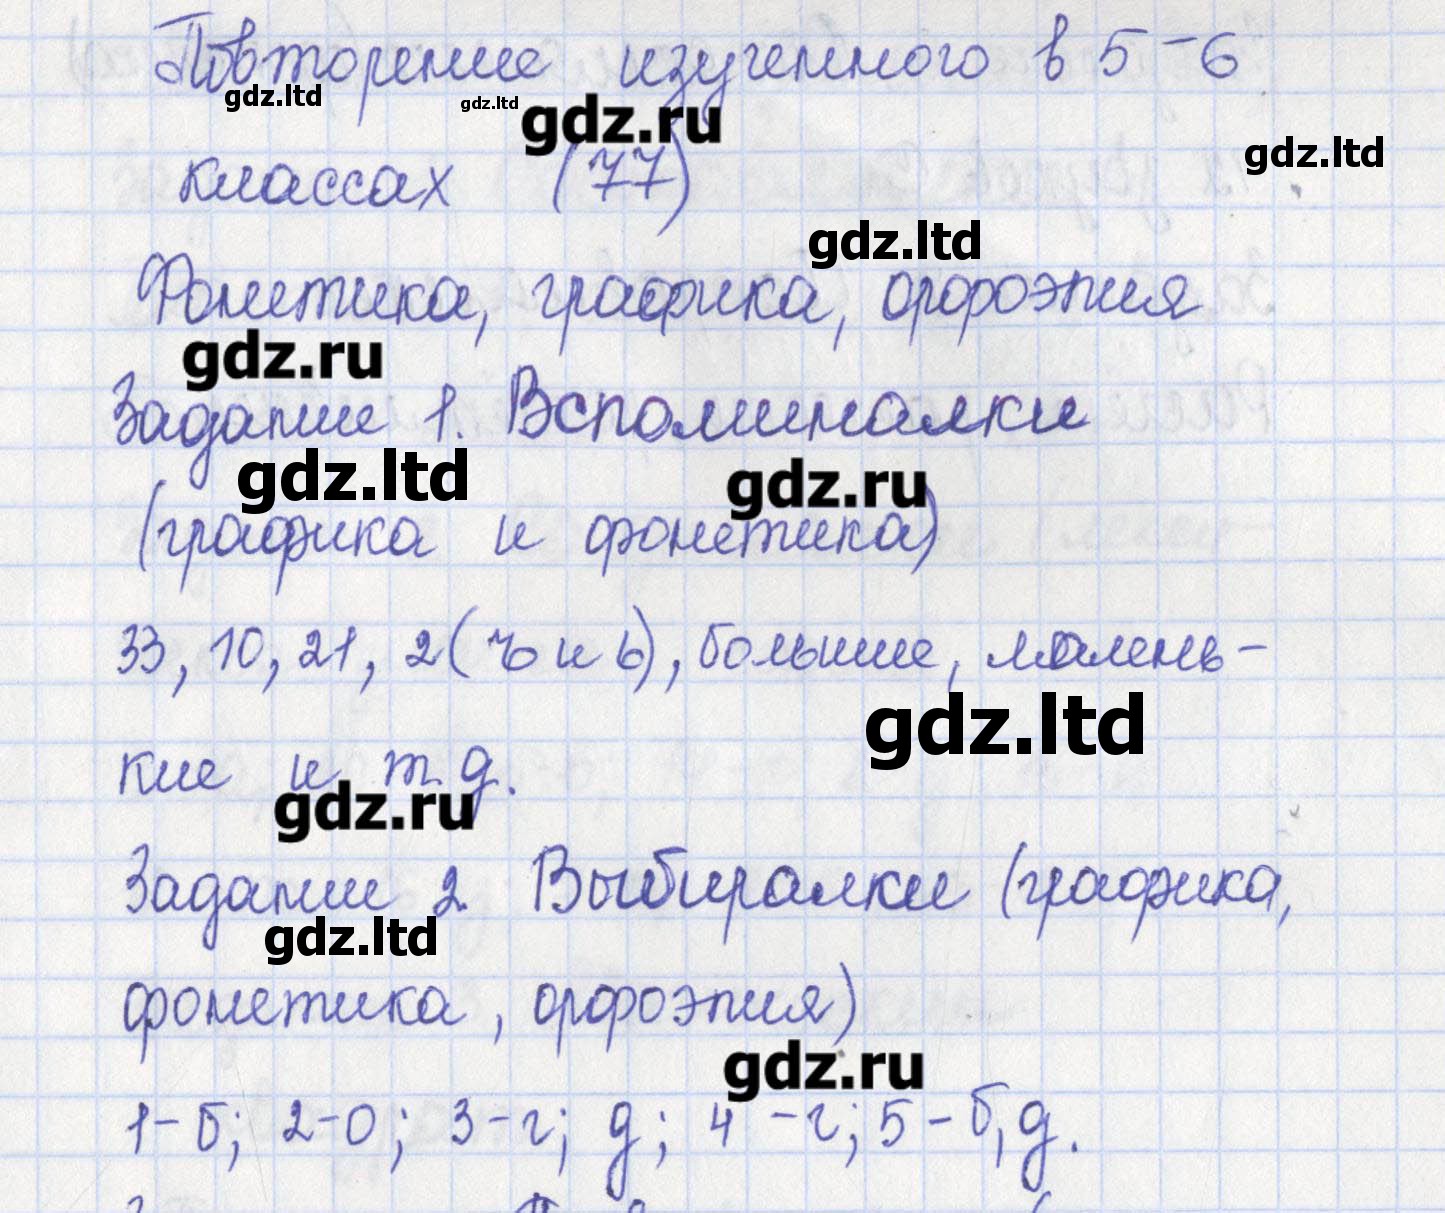 Повторение изученного в 5-6
gdz.ltd gdz.ltd gdz.ru
gdz.ltd
классах (77)
gdz.ltd
Фонетика, графика, орфоэпия
gdz.ru
Задание 1. Вспоминалки
gdz.ltd gdz.ru
(графика и фонетика)
33, 10, 21, 2 (ъ и ь), большие, малень-
gdz.ltd
кие и т.д.
gdz.ru
Задание 2 Выбиралки (графика,
gdz.ltd
фонетика, орфоэпия)
gdz.ru
1-б; 2-о; 3-г; д; 4-г; 5-б, д.